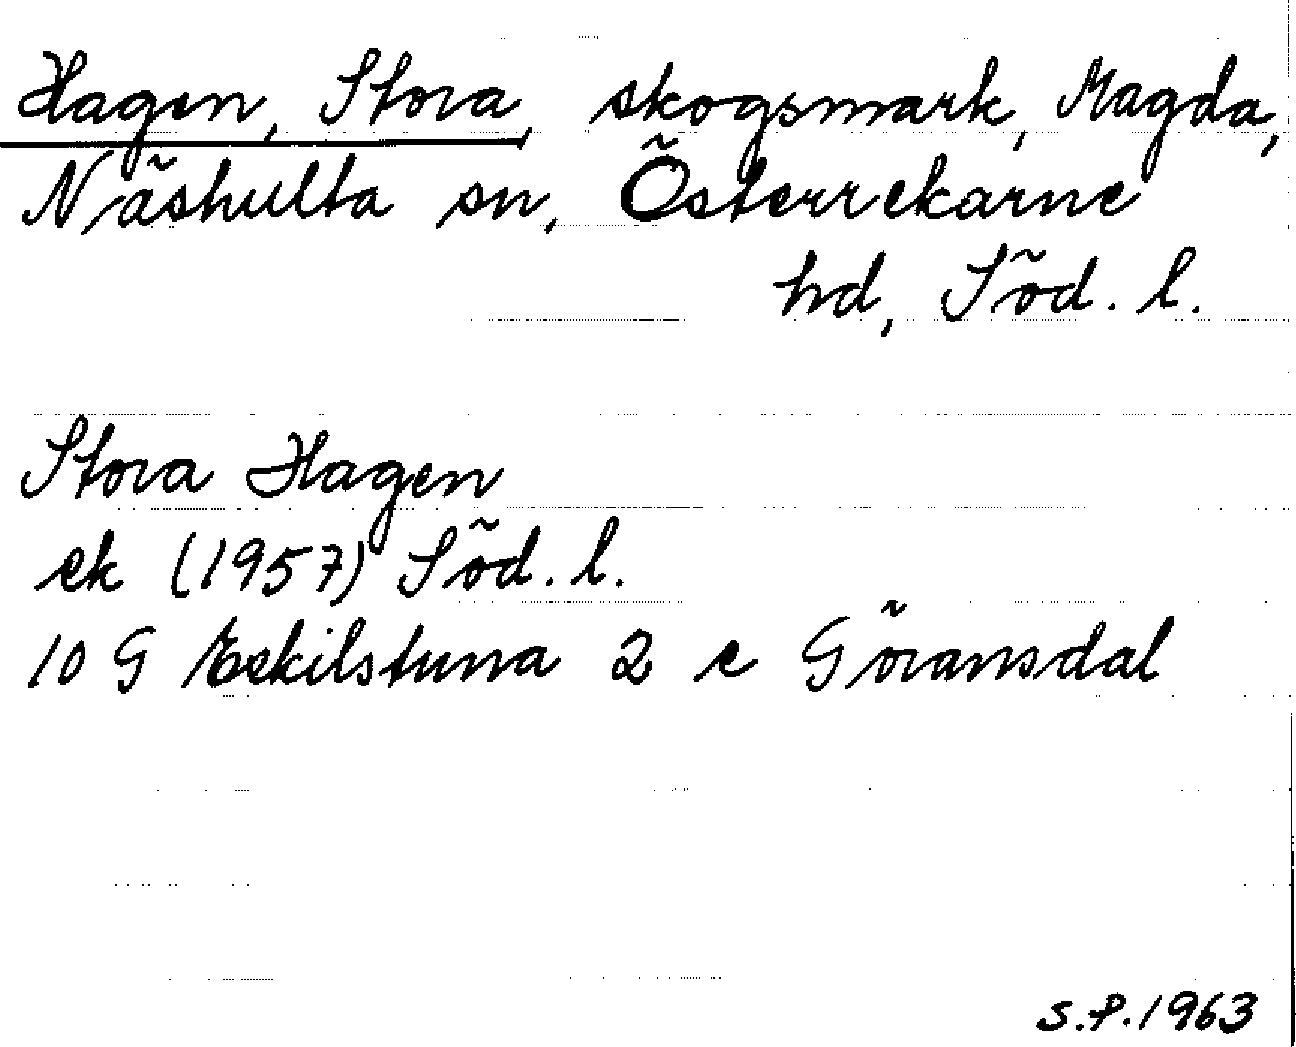 Hagen, Stora, skogsmark, Magda,
Näshulta sn, Österrekarne
hd, Söd. l.
Stora Hagen
ek (1957) Söd. l.
10 G Eskilstuna 2 e Göransdal
S.P. 1963